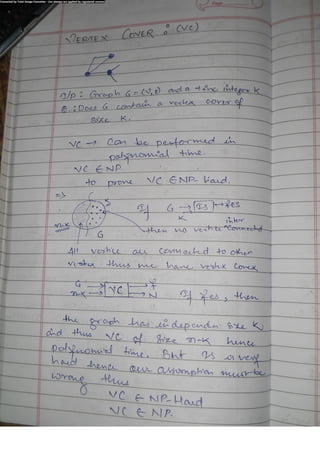 VERTEX COVER : (VC)
I/P : Graph G = (V,E) and a +ive integer K
Q. : Does G contain a vertex cover of
size K.
VC → Can be performed in
polynomial time.
VC ∈ NP
to prove VC ∈ NP-Hard.
If G → IS → yes
K
then no vertex connected
n-k
G
All vertice are connected to other
vertex thus we have vertex cover.
G → VC → Y
n-k → N
If yes, then
the graph has independen size K
and thus VC of size n-k hence
polynomial time. But IS is very
hard hence our assumption must be
wrong thus
VC ∈ NP-Hard
VC ∈ NP.